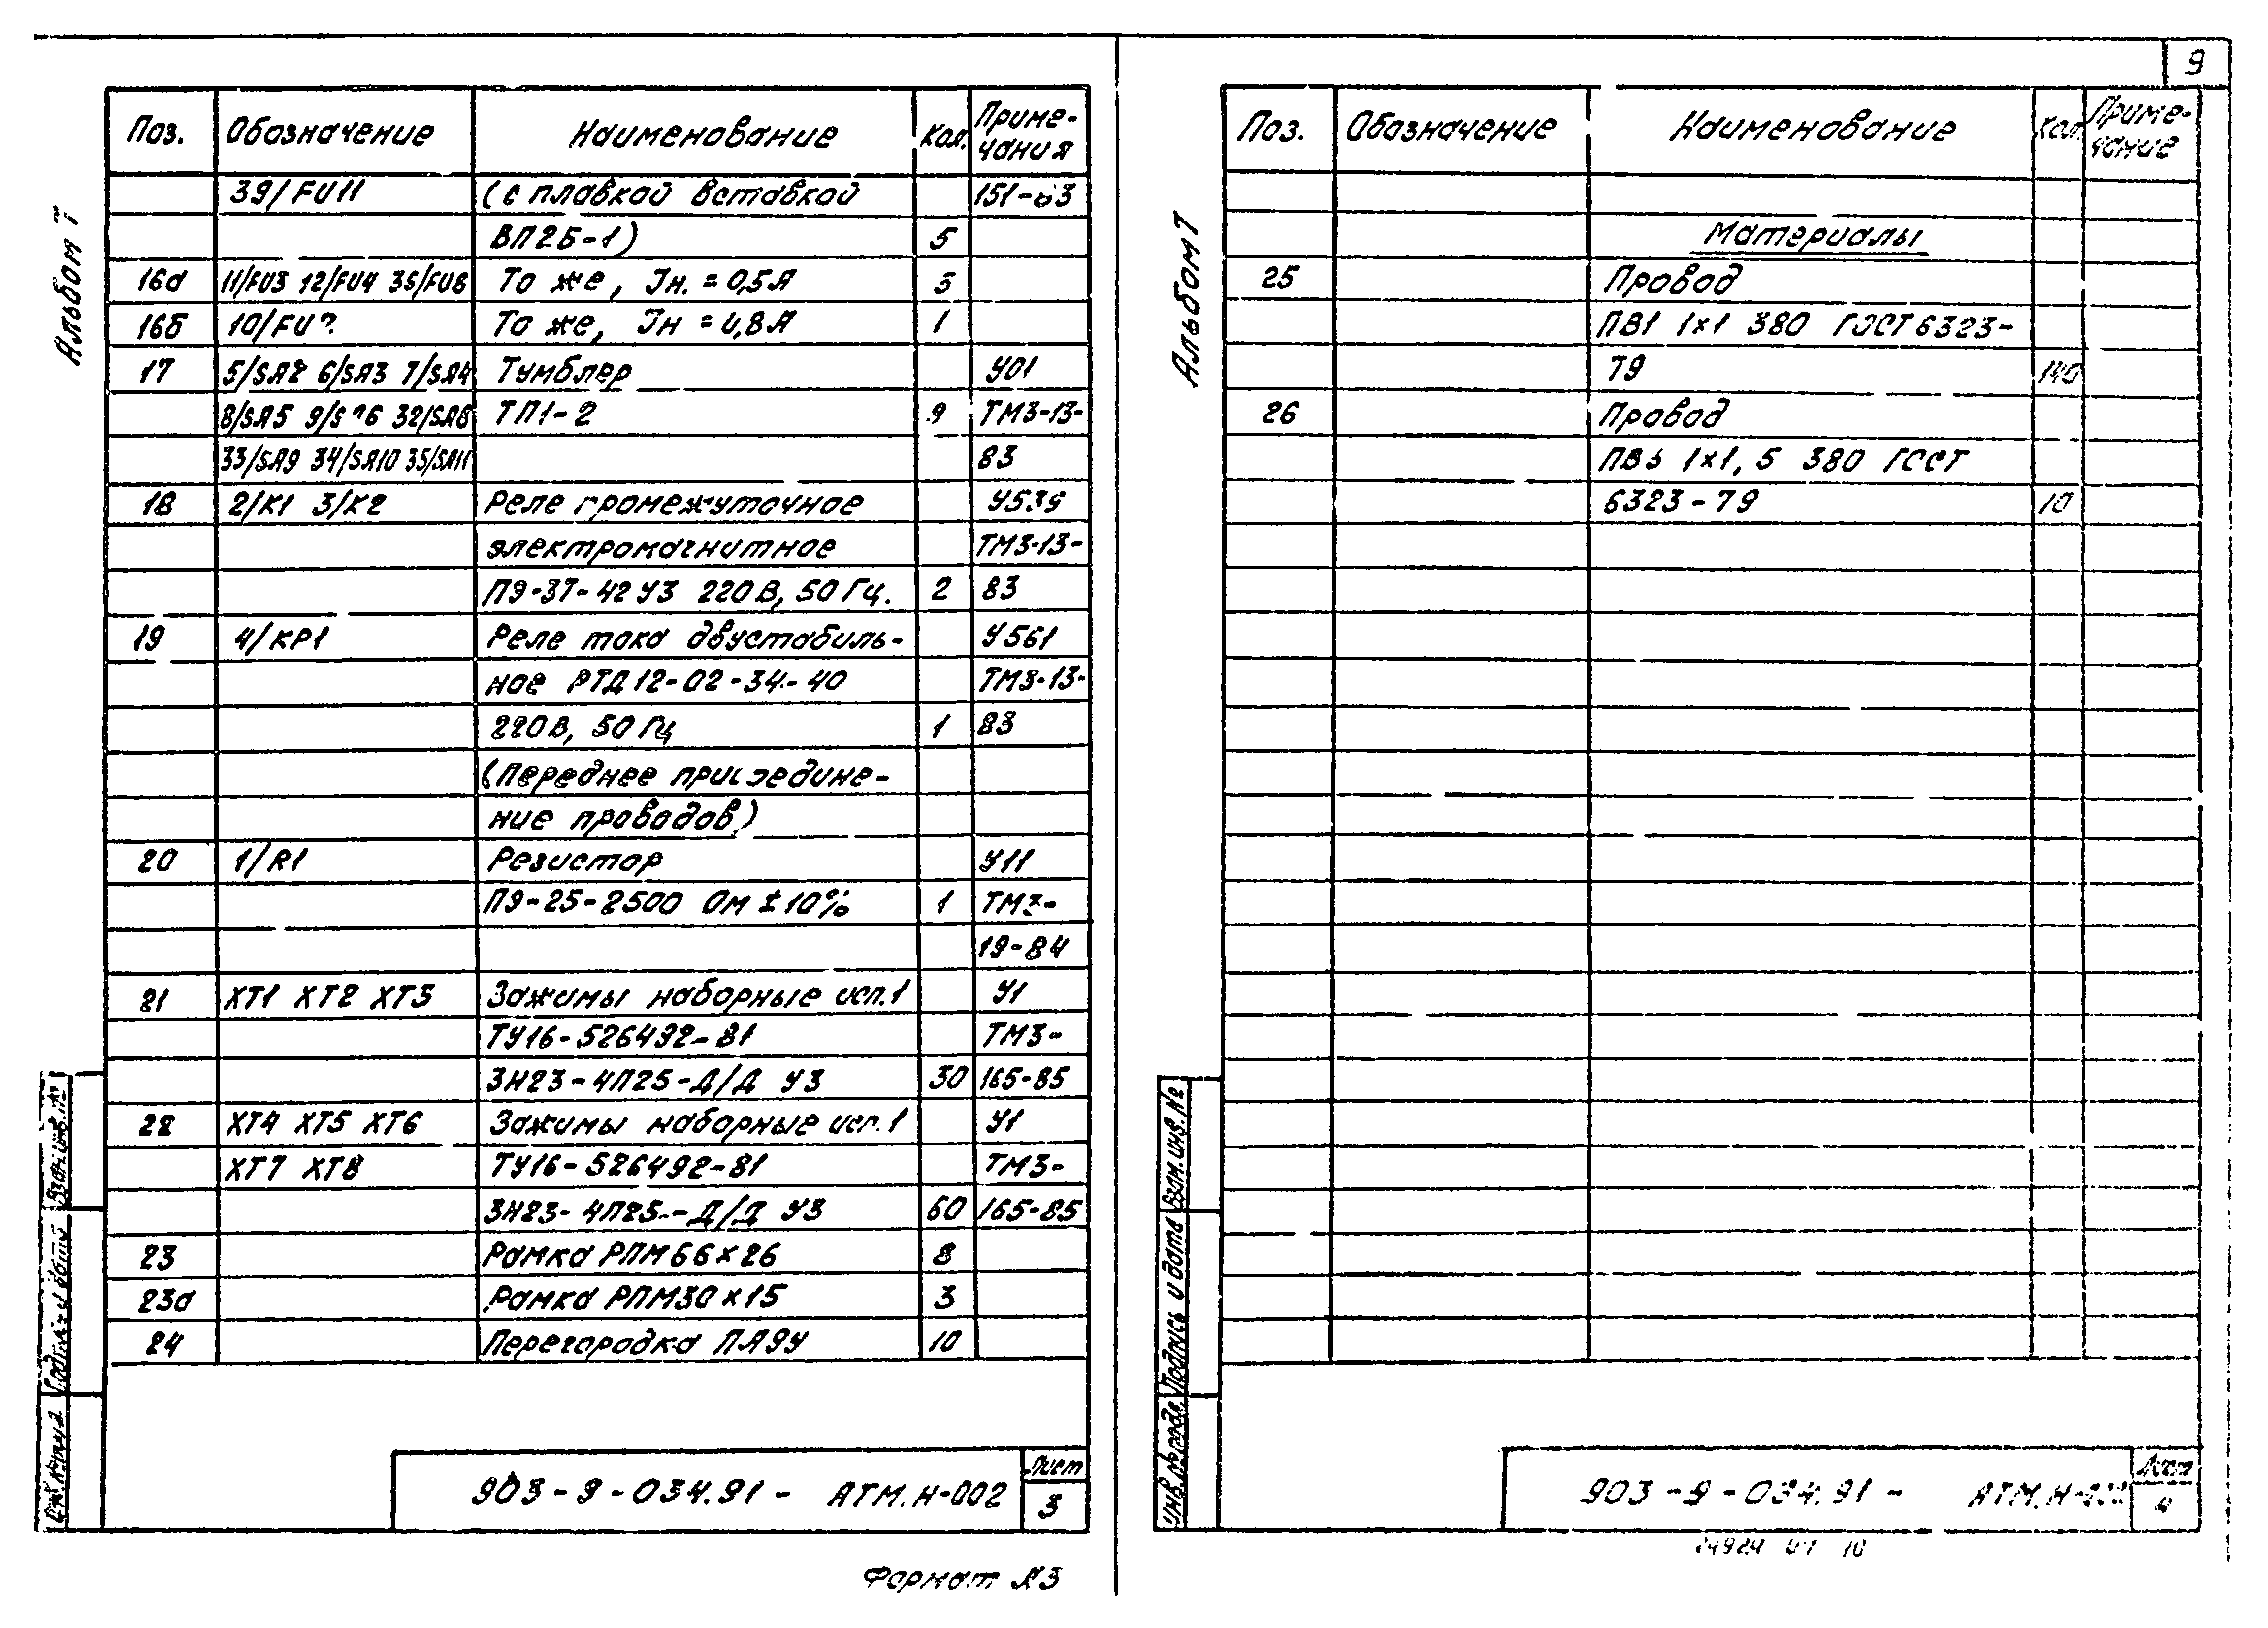 Альбом I
Поз. Обозначение Наименование Кол. Приме-
чания
39/FU11 (с плавкой вставкой 151-83
ВП2Б-1) 5
16а 11/FU3 12/FU4 36/FU8 То же, Iн. = 0,5А 3
16б 10/FU То же, Iн = 0,8А 1
17 5/SA2 6/SA3 7/SA4 Тумблер У01
8/SA5 9/SA6 32/SA8 ТП1-2 9 ТМ3-13-
33/SA9 34/SA10 35/SA11 83
18 2/К1 3/К2 Реле промежуточное У539
электромагнитное ТМ3-13-
ПЭ-37-42У3 220В, 50Гц. 2 83
19 4/КР1 Реле тока двустабиль- У561
ное РТД12-02-34-40 ТМ3-13-
220В, 50Гц 1 83
(Переднее присоедине-
ние проводов)
20 1/R1 Резистор У11
ПЭ-25-2500 Ом ±10% 1 ТМ3-
19-84
21 ХТ1 ХТ2 ХТ3 Зажимы наборные исп.1 У1
ТУ16-526492-81 ТМ3-
ЗН23-4П25-Д/Д У3 30 165-85
22 ХТ4 ХТ5 ХТ6 Зажимы наборные исп.1 У1
ХТ7 ХТ8 ТУ16-526492-81 ТМ3-
ЗН23-4П25-Д/Д У3 60 165-85
23 Рамка РПМ66×26 8
23а Рамка РПМ30×15 3
24 Перегородка ПА9У 10
Взам.инв.№
Подпись и дата
903-9-034.91- АТМ.Н-002
Лист
3
Формат А3
9
Альбом I
Поз. Обозначение Наименование Кол. Приме-
чание
Материалы
25 Провод
ПВ1 1×1 380 ГОСТ 6323-
79 140
26 Провод
ПВ3 1×1,5 380 ГОСТ
6323-79 10
Взам.инв.№
Подпись и дата
Инв.№подл.
903-9-034.91- АТМ.Н-002
Лист
4